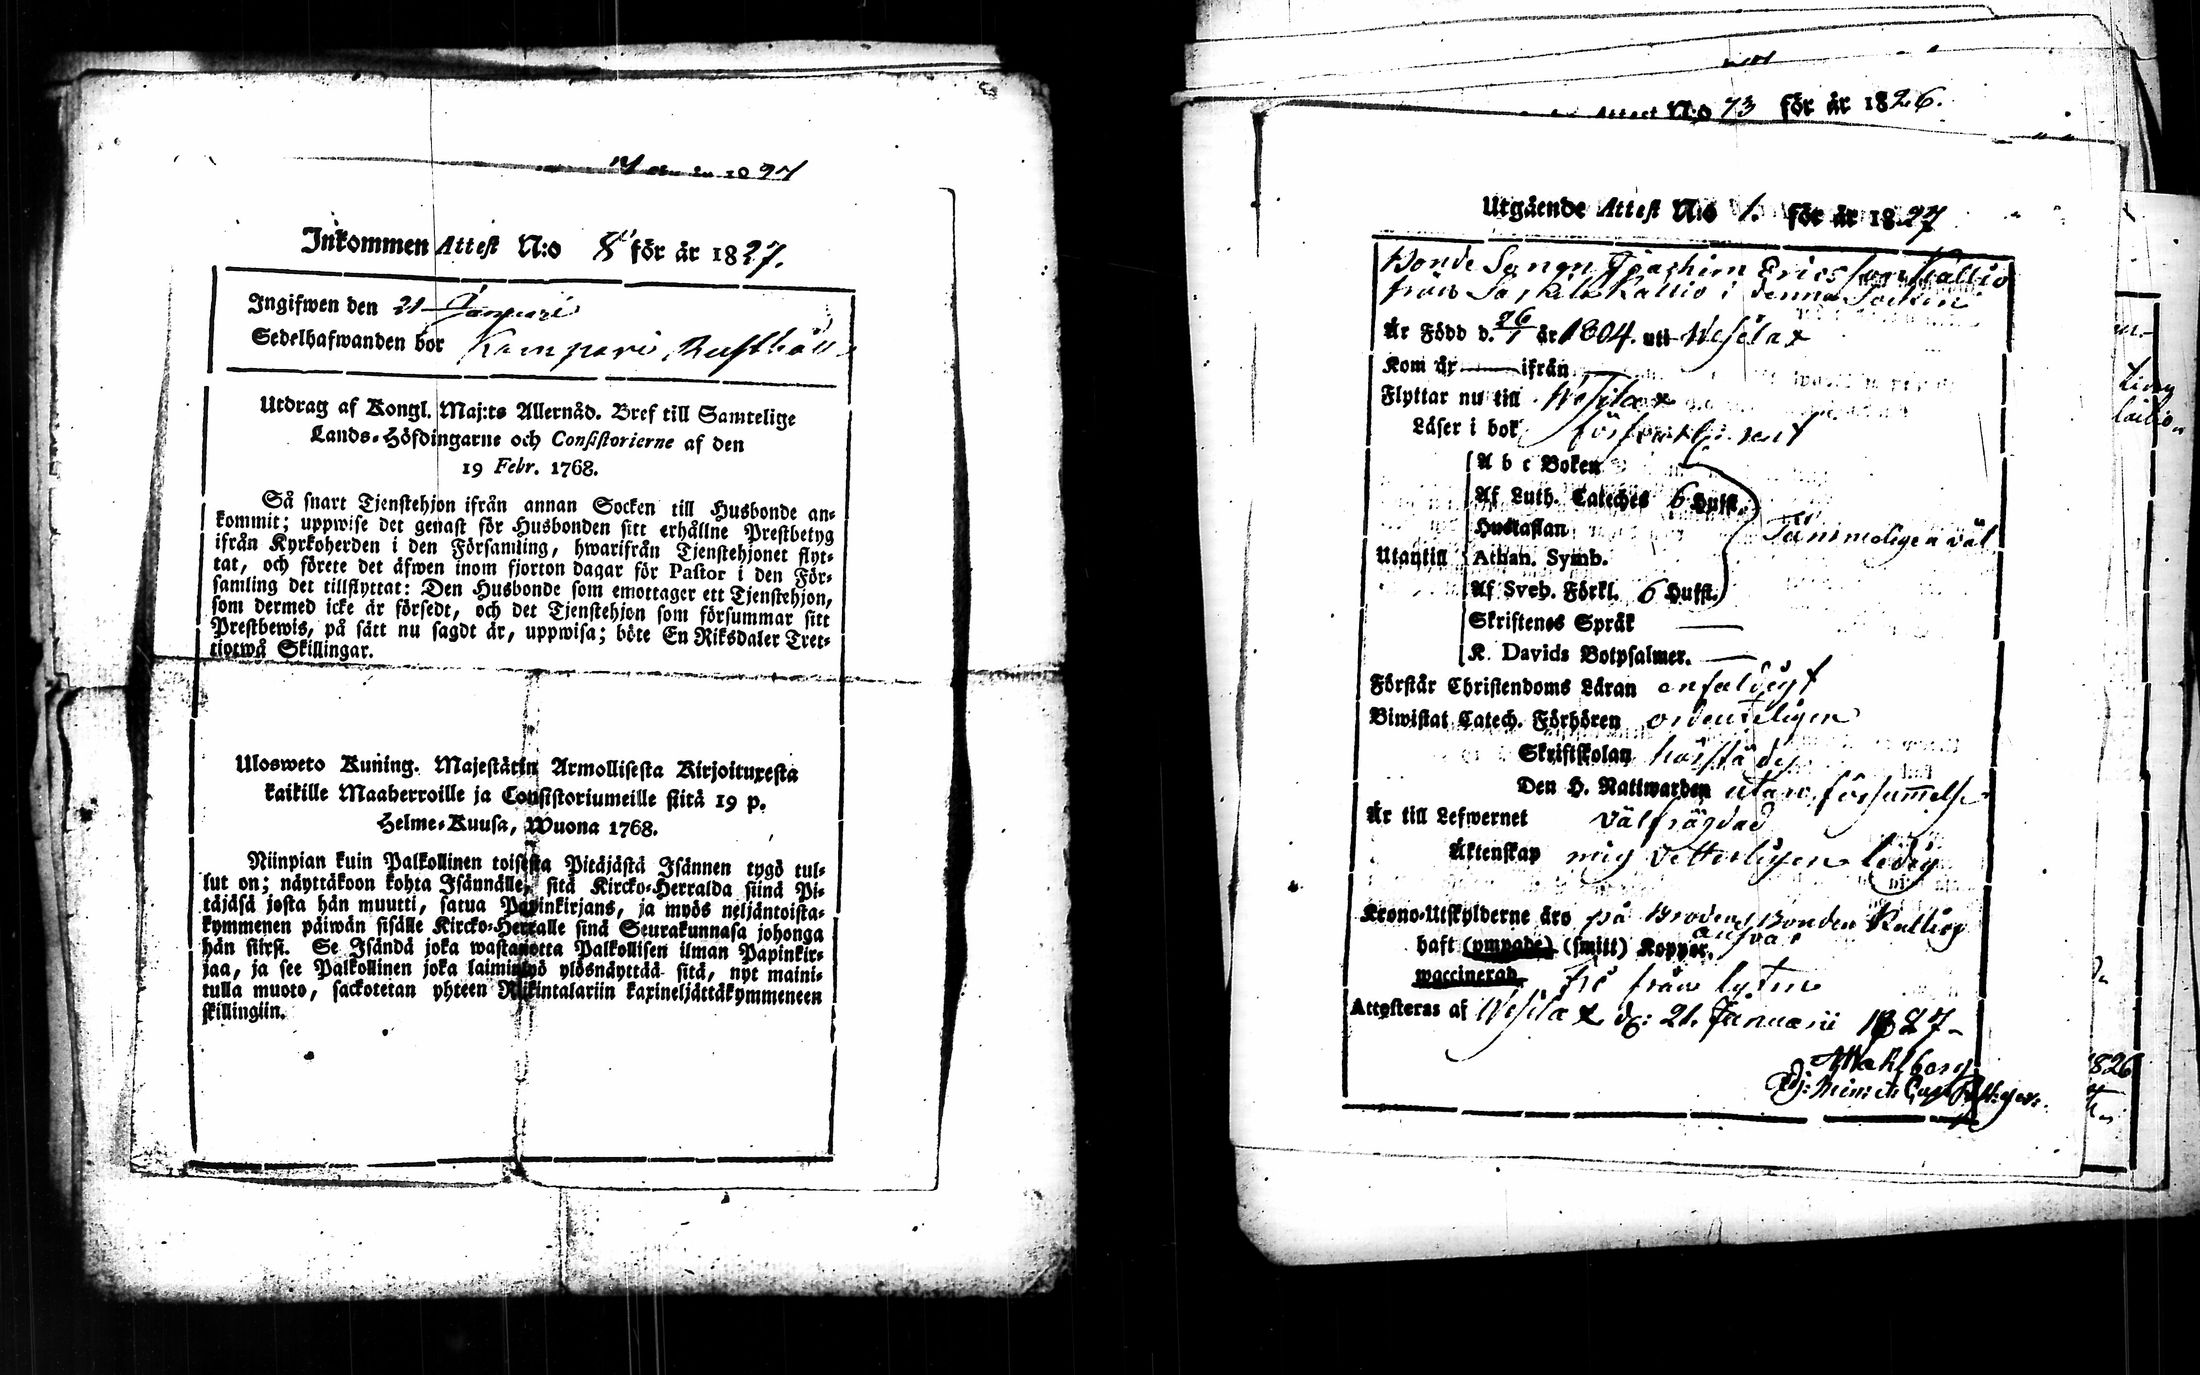 Inkommen Attest N:o 8 för år 1827.
Ingifwen den 21 Januari
Sedelhafwanden bor Kampari Rusthåll
Utdrag af Kongl. Maj:ts Allernåd. Bref till Samtelige
Lands-Höfdingarne och Consistorierne af den
19 Febr. 1768.
Så snart Tjenstehjon ifrån annan Socken till Husbonde an-
kommit; uppwise det genast för Husbonden sitt erhållne Prestbetyg
ifrån Kyrkoherden i den Församling, hwarifrån Tjenstehjonet flyt-
tat, och förete det äfwen inom fjorton dagar för Pastor i den För-
samling det tillflyttat: Den Husbonde som emottager ett Tjenstehjon,
som dermed icke är försedt, och det Tjenstehjon som försummar sitt
Prestbewis, på sätt nu sagdt är, uppwisa; böte En Riksdaler Tret-
tiotwå Skillingar.
Ulosweto Kuning. Majestätin Armollisesta Kirjoituxesta
kaikille Maaherroille ja Consistoriumeille siitä 19 p.
Helme-Kuusa, Wuona 1768.
Niinpian kuin Palkollinen toisesta Pitäjästä Isännen tygö tul-
lut on; näyttäkoon kohta Isännälle, sitä Kircko-Herralda siinä Pi-
täjäsä josta hän muutti, satua Papinkirjans, ja myös neljäntoista-
kymmenen päiwän sisälle Kircko-Herralle sinä Seurakunnasa johonga
hän siirsi. Se Isändä joka wastanotta Palkollisen ilman Papinkir-
jaa, ja see Palkollinen joka laiminlyö ylösnäyttää sitä, nyt maini-
tulla muoto, sackotetan yhteen Riikintalariin kaxineljättäkymmeneen
skillingiin.
Attest N:o 73 för år 1826.
Utgående Attest N:o 1. för år 1827
Bonde Sonen Joachim Ericsson Kallio
från Kallio i denna Socken
Är Född d. 26/1 år 1804. uti Wesilax
Kom år — ifrån —
Flyttar nu till Wesilax
Läser i bok försvarligent
A b c Boken
Af Luth. Cateches 6 Hufst.
Hustaflan
Tämmeligen väl
Utantill Athan. Symb.
Af Sveb. Förkl. 6 Hufst.
Skriftenes Språk —
K. Davids Botpsalmer. —
Förstår Christendoms Läran enfaldigt
Biwistat Catech. Förhören ordenteligen
Skriftskolan
Den H. Nattwarden utan försummelse
Är till Lefwernet välfrägdad
Äktenskap mig vetterligen ledig
Krono-Utskylderne äro på Brodren Bonden Kallios
answar
haft (ympade) (smitt) Koppor.
waccinerad. fri från lyten
Attesteras af Wesilax d: 21. Januarii 1827
Wahlberg